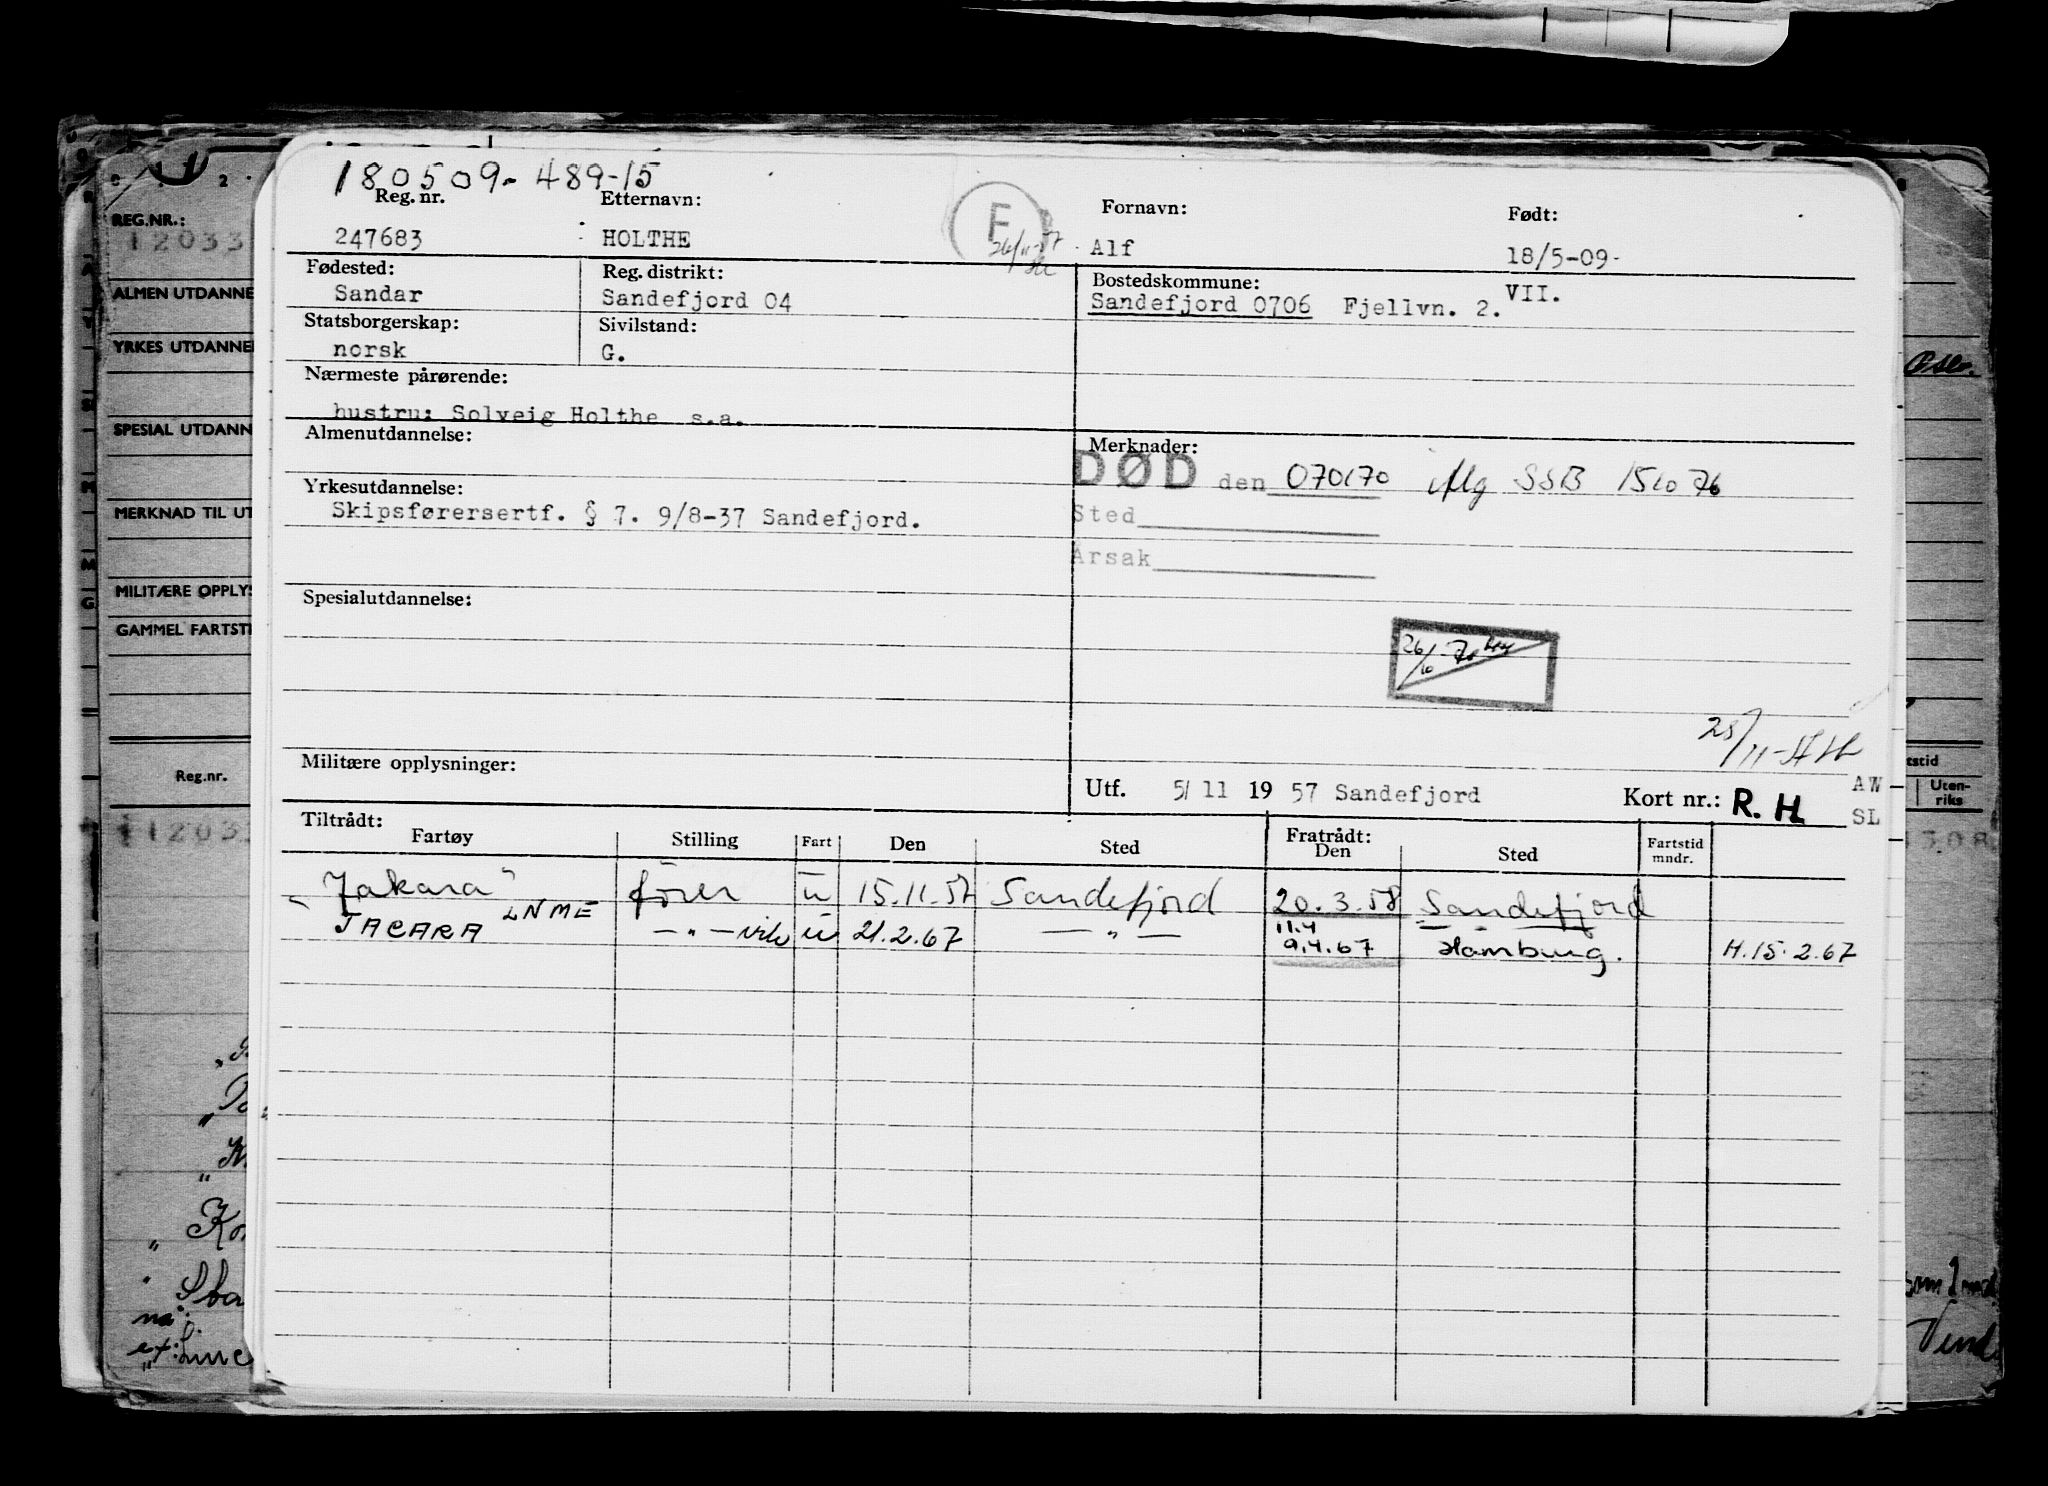 180509-489-15
Reg. nr. Etternavn: Fornavn: Født:
247683 HOLTHE F Alf 18/5-09-
Fødested: Reg. distrikt: Bostedskommune: VII.
Sandar Sandefjord 04 Sandefjord 0706 Fjellvn. 2.
Statsborgerskap: Sivilstand:
norsk G.
Nærmeste pårørende:
hustru: Solveig Holthe s.a.
Almenutdannelse: Merknader:
DØD den 070170 iflg SSB 151076
Yrkesutdannelse:
Skipsførersertf. § 7. 9/8-37 Sandefjord.
Sted
Årsak
Spesialutdannelse:
26/10-70
28/11-57
Militære opplysninger:
Utf. 5/11 1957 Sandefjord Kort nr.: R. H. AW
SL
Tiltrådt: Fratrådt:
Fartøy Stilling Fart Den Sted Den Sted Fartstid mndr.
"Jakara" fører u 15.11.57 Sandefjord 20.3.58 Sandefjord
JACARA LNME -"- vik u 21.2.67 -"- 11.4 9.4.67 Hamburg. H.15.2.67
REG.NR.:
12033
ALMEN UTDANNE
YRKES UTDANNE
SPESIAL UTDANN
MERKNAD TIL UT
MILITÆRE OPPLYS
GAMMEL FARTSTI
Reg.nr.
12033
Oslo.
tstid
Uten-
riks
308